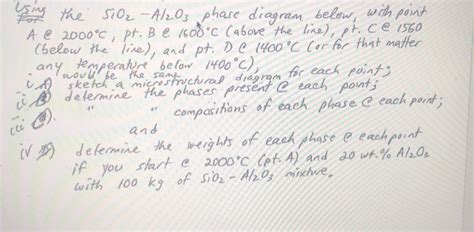 Using
For the SiO2 - Al2O3 phase diagram below, with point
A @ 2000°C, pt. B @ 1600°C (above the line), pt. C @ 1560
(below the line), and pt. D @ 1400°C (or for that matter
any temperature below 1400°C),
would be the same
i. A) sketch a microstructural diagram for each point;
ii B). determine the phases present @ each point;
iii " " compositions of each phase @ each point;
and
iv D) determine the weights of each phase @ each point
if you start @ 2000°C (pt. A) and 20 wt.% Al2O3
with 100 kg of SiO2 - Al2O3 mixture.